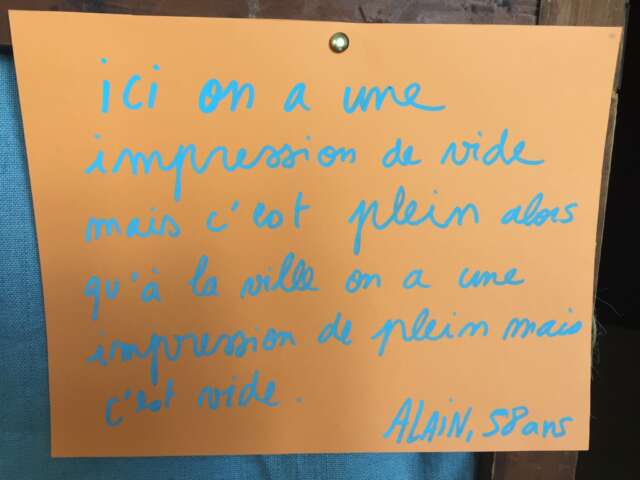 ici on a une
impression de vide
mais c'est plein alors
qu'à la ville on a une
impression de plein mais
c'est vide.
ALAIN, 58 ans